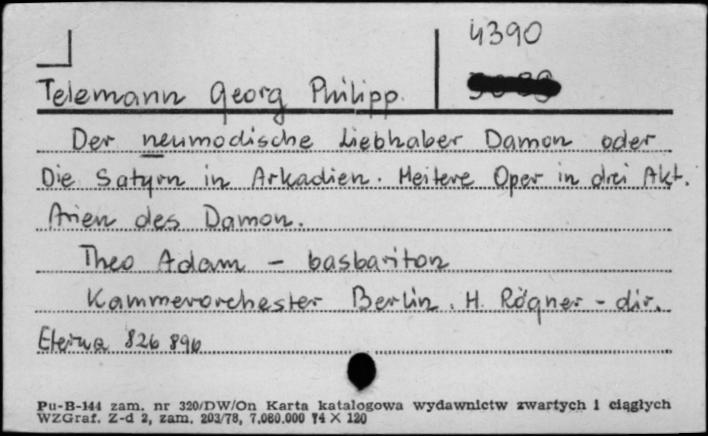 4390
Telemann Georg Philipp.
Der neumodische Liebhaber Damon oder
Die Satyrn in Arkadien. Heitere Oper in drei Akt.
Arien des Damon.
Theo Adam - basbariton
Kammerorchester Berlin. H. Rögner - dir.
Eterna 826 896
Pu-B-144 zam. nr 320/DW/On Karta katalogowa wydawnictw zwartych i ciągłych
WZGraf. Z-d 2, zam. 203/78, 7.080.000 74 X 120